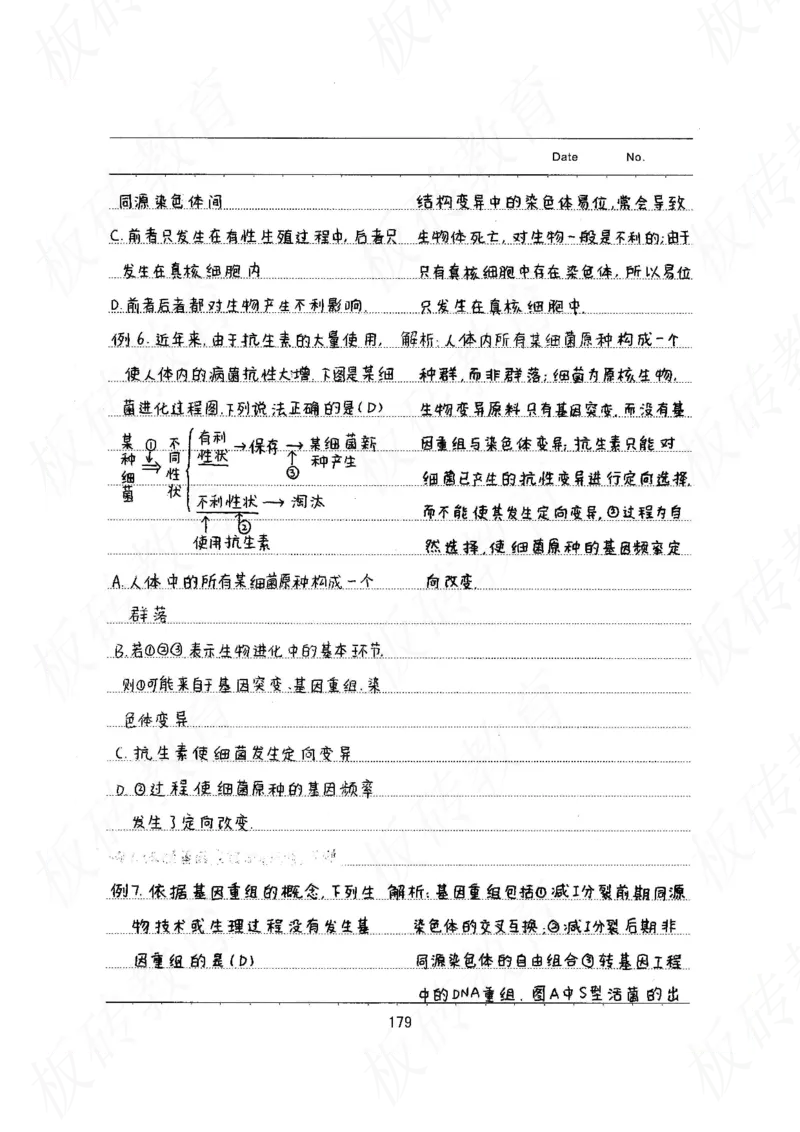 Date No.
同源染色体间
C.前者只发生在有性生殖过程中,后者只
发生在真核细胞内
D.前者后者都对生物产生不利影响.
例6.近年来,由于抗生素的大量使用,
使人体内的病菌抗性大增.下图是某细
菌进化过程图.下列说法正确的是(D)
某种细菌 ① 不同性状 有利性状 →保存 → 某细菌新种产生
③
不利性状 → 淘汰
②
使用抗生素
A.人体中的所有某细菌原种构成一个
群落
B.若①②③表示生物进化中的基本环节.
则①可能来自于基因突变、基因重组.染
色体变异
C.抗生素使细菌发生定向变异
D.②过程使细菌原种的基因频率
发生了定向改变.
例7.依据基因重组的概念,下列生
物技术或生理过程没有发生基
因重组的是(D)
结构变异中的染色体易位,常会导致
生物体死亡,对生物一般是不利的;由于
只有真核细胞中存在染色体,所以易位
只发生在真核细胞中.
解析:人体内所有某细菌原种构成一个
种群,而非群落;细菌为原核生物,
生物变异原料只有基因突变,而没有基
因重组与染色体变异;抗生素只能对
细菌已产生的抗性变异进行定向选择,
而不能使其发生定向变异,②过程为自
然选择,使细菌原种的基因频率定
向改变.
解析:基因重组包括①减I分裂前期同源
染色体的交叉互换;②减I分裂后期非
同源染色体的自由组合③转基因工程
中的DNA重组.图A中S型活菌的出
179
板砖教育